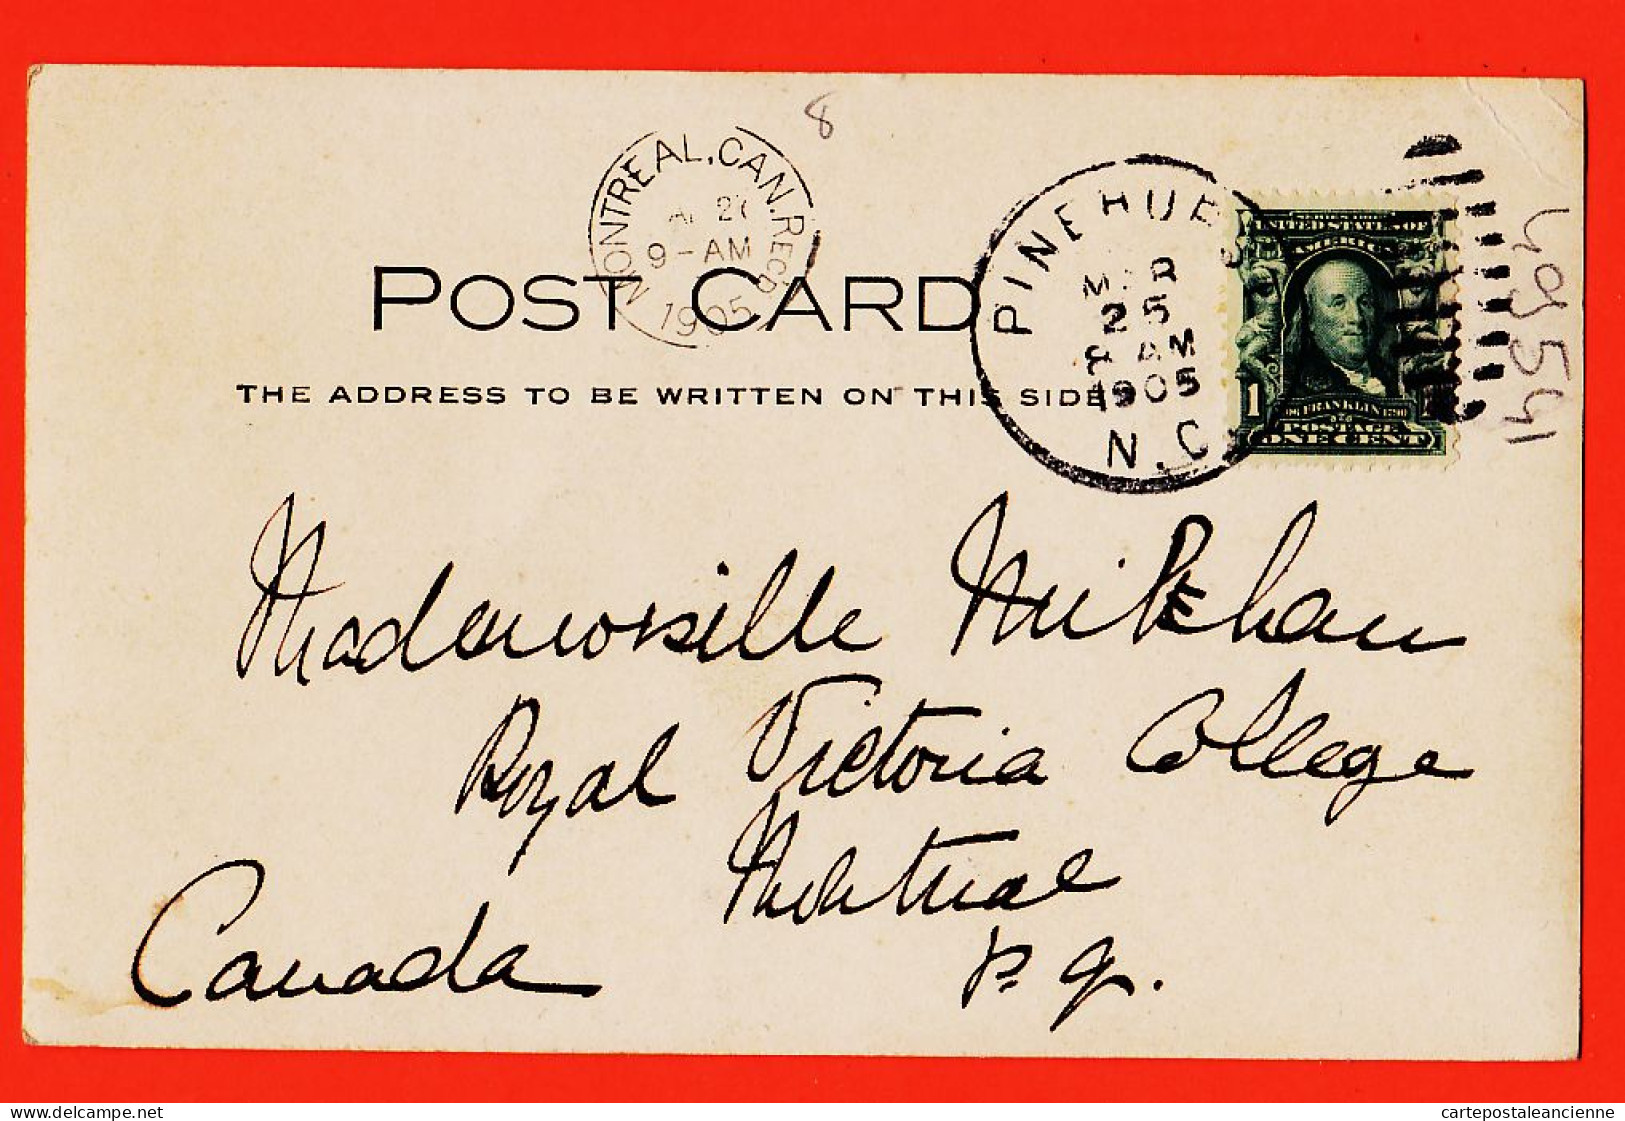 8
MONTREAL, CAN. REC'D
27
9 - AM
1905
PINEHURS
N.C.
MAR
25
8 AM
1905
UNITED STATES OF
AMERICA
FRANKLIN
POSTAGE
1
ONE CENT
POST CARD
THE ADDRESS TO BE WRITTEN ON THIS SIDE
Mademoiselle
PE
Royal Victoria College
Montreal
P. Q.
Canada
delcampe.net
cartepostaleancienne